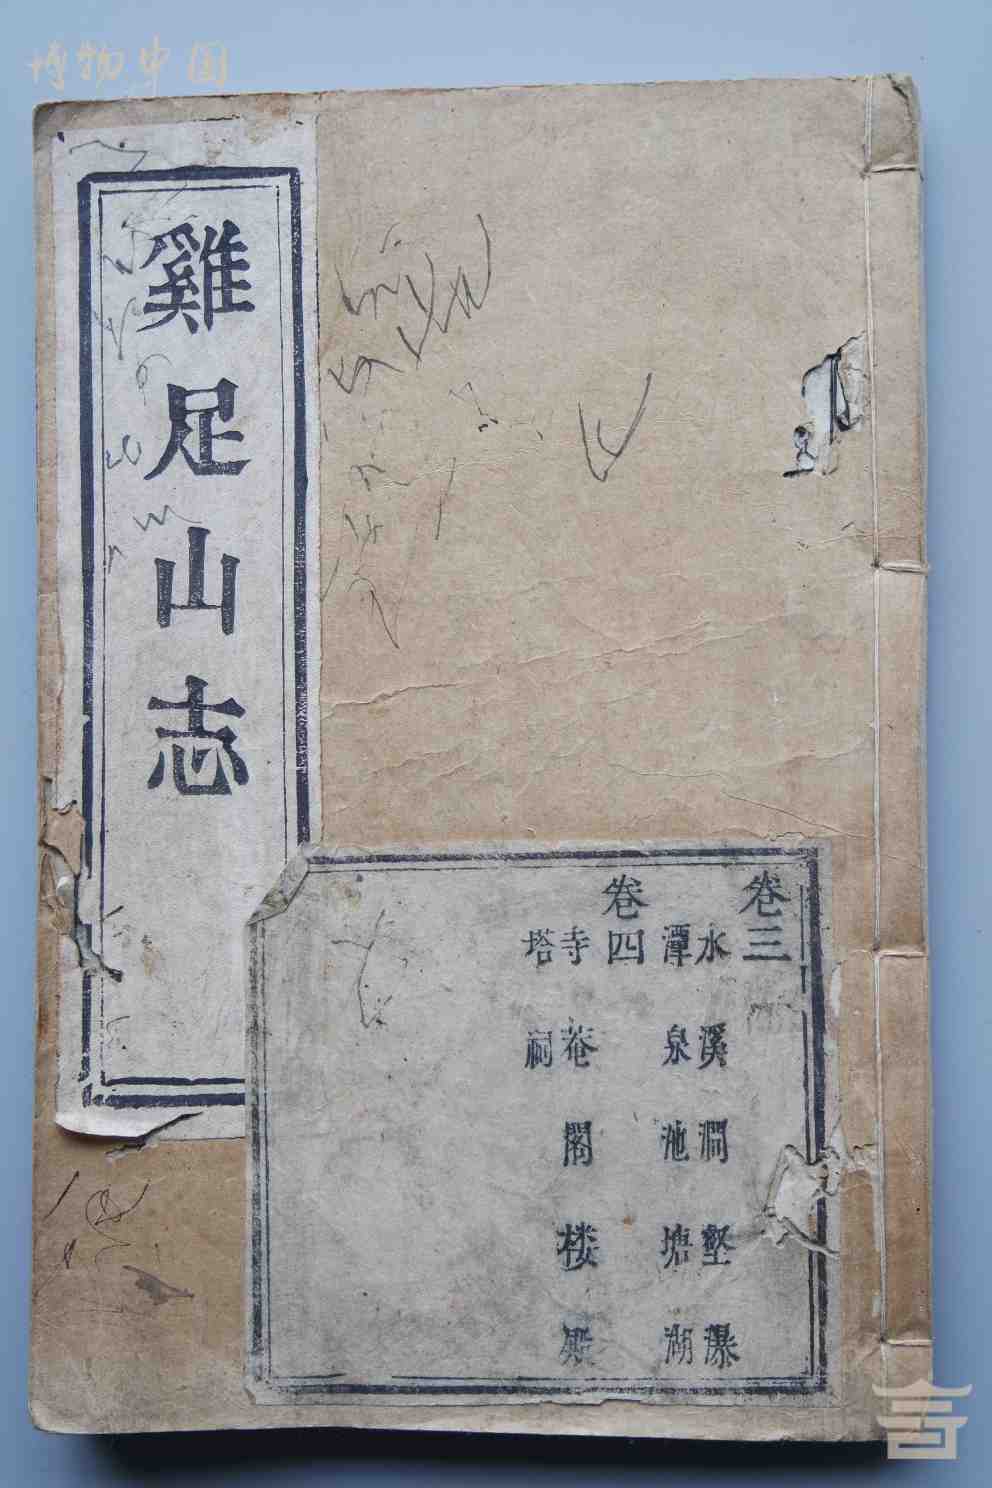 博物中国
雞足山志
卷三
水溪澗壑瀑
潭泉池塘湖
卷四
寺菴閣楼殿
塔祠